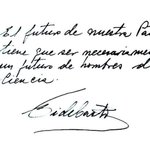 El futuro de nuestra Pa
tiene que ser necesariamen
un futuro de hombres d
Ciencia.
Fidel Castro